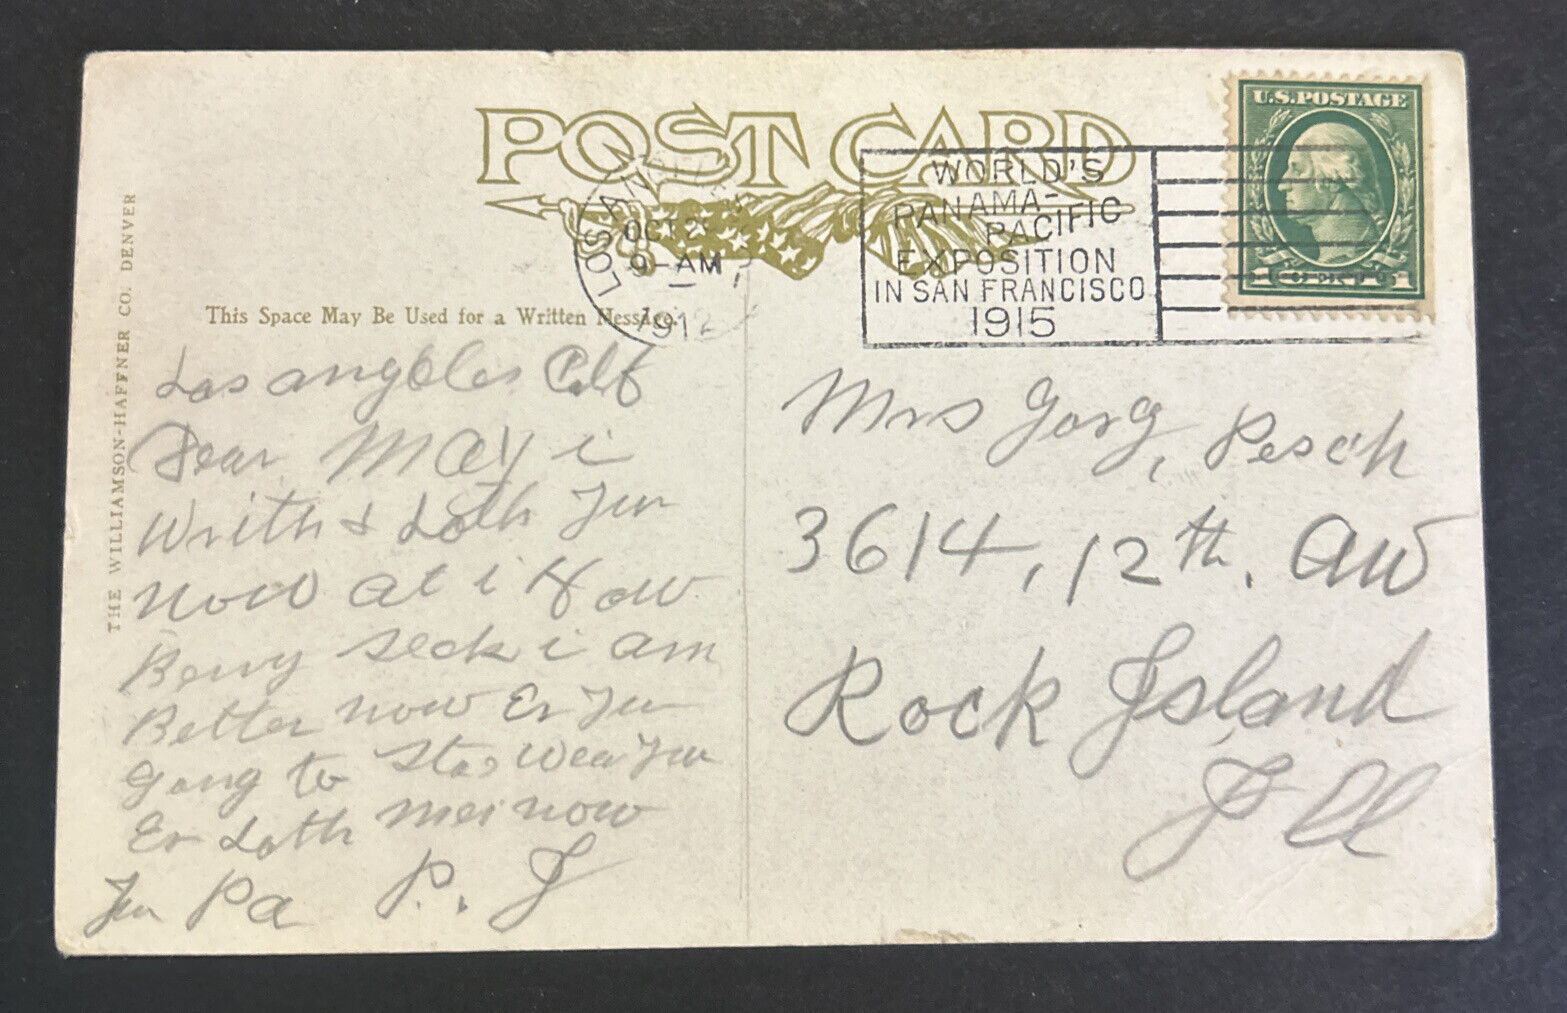 POST CARD
U.S.POSTAGE
1 1
LOS ANGELES
OCT 2
9-AM
1912
WORLD'S
PANAMA-
PACIFIC
EXPOSITION
IN SAN FRANCISCO
1915
THE WILLIAMSON-HAFFNER CO. DENVER
This Space May Be Used for a Written Message.
Los angeles Calf
Dear May i
Writh & Loth Jur
now at i Haw
Berry seck i am
Better now Er Jur
gong to Stay Wea Jur
Er Loth mei now
Jur Pa P. J
Mrs Gorg, Pesch
3614, 12th, aw
Rock Island
Ill